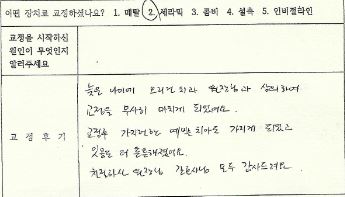 어떤 장치로 교정하셨나요? 1. 메탈 2. 세라믹 3. 콤비 4. 설측 5. 인비절라인
교정을 시작하신
원인이 무엇인지
알려주세요
교 정 후 기
늦은 나이에 드리건치과 원장님과 상의하여
교정을 무사히 마치게 되었어요.
교정후 가지런한 예쁜 치아도 가지게 되었고
잇몸도 더 튼튼해졌어요.
치료하신 원장님 간호사님 모두 감사드려요.